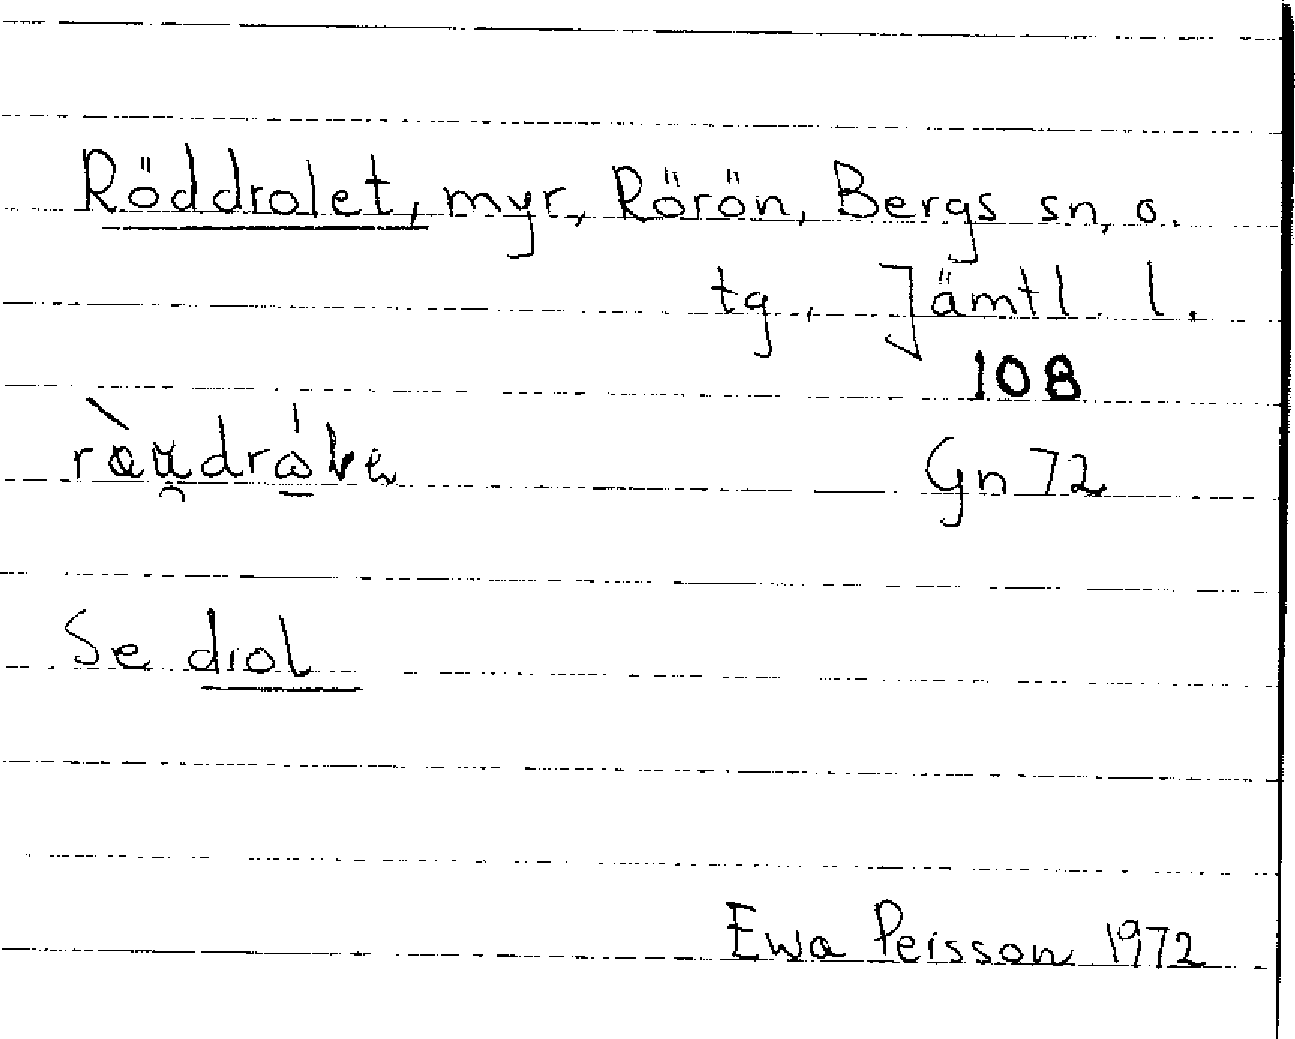 Röddrolet, myr, Rörön, Bergs sn, o.
tg., Jämtl. l.
108
Gn 72
Se drol
Ewa Persson 1972